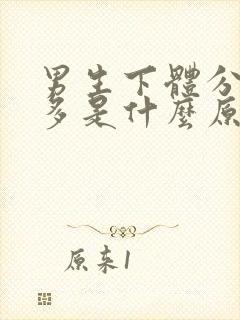 男生下體分
多是什麼原
原来1